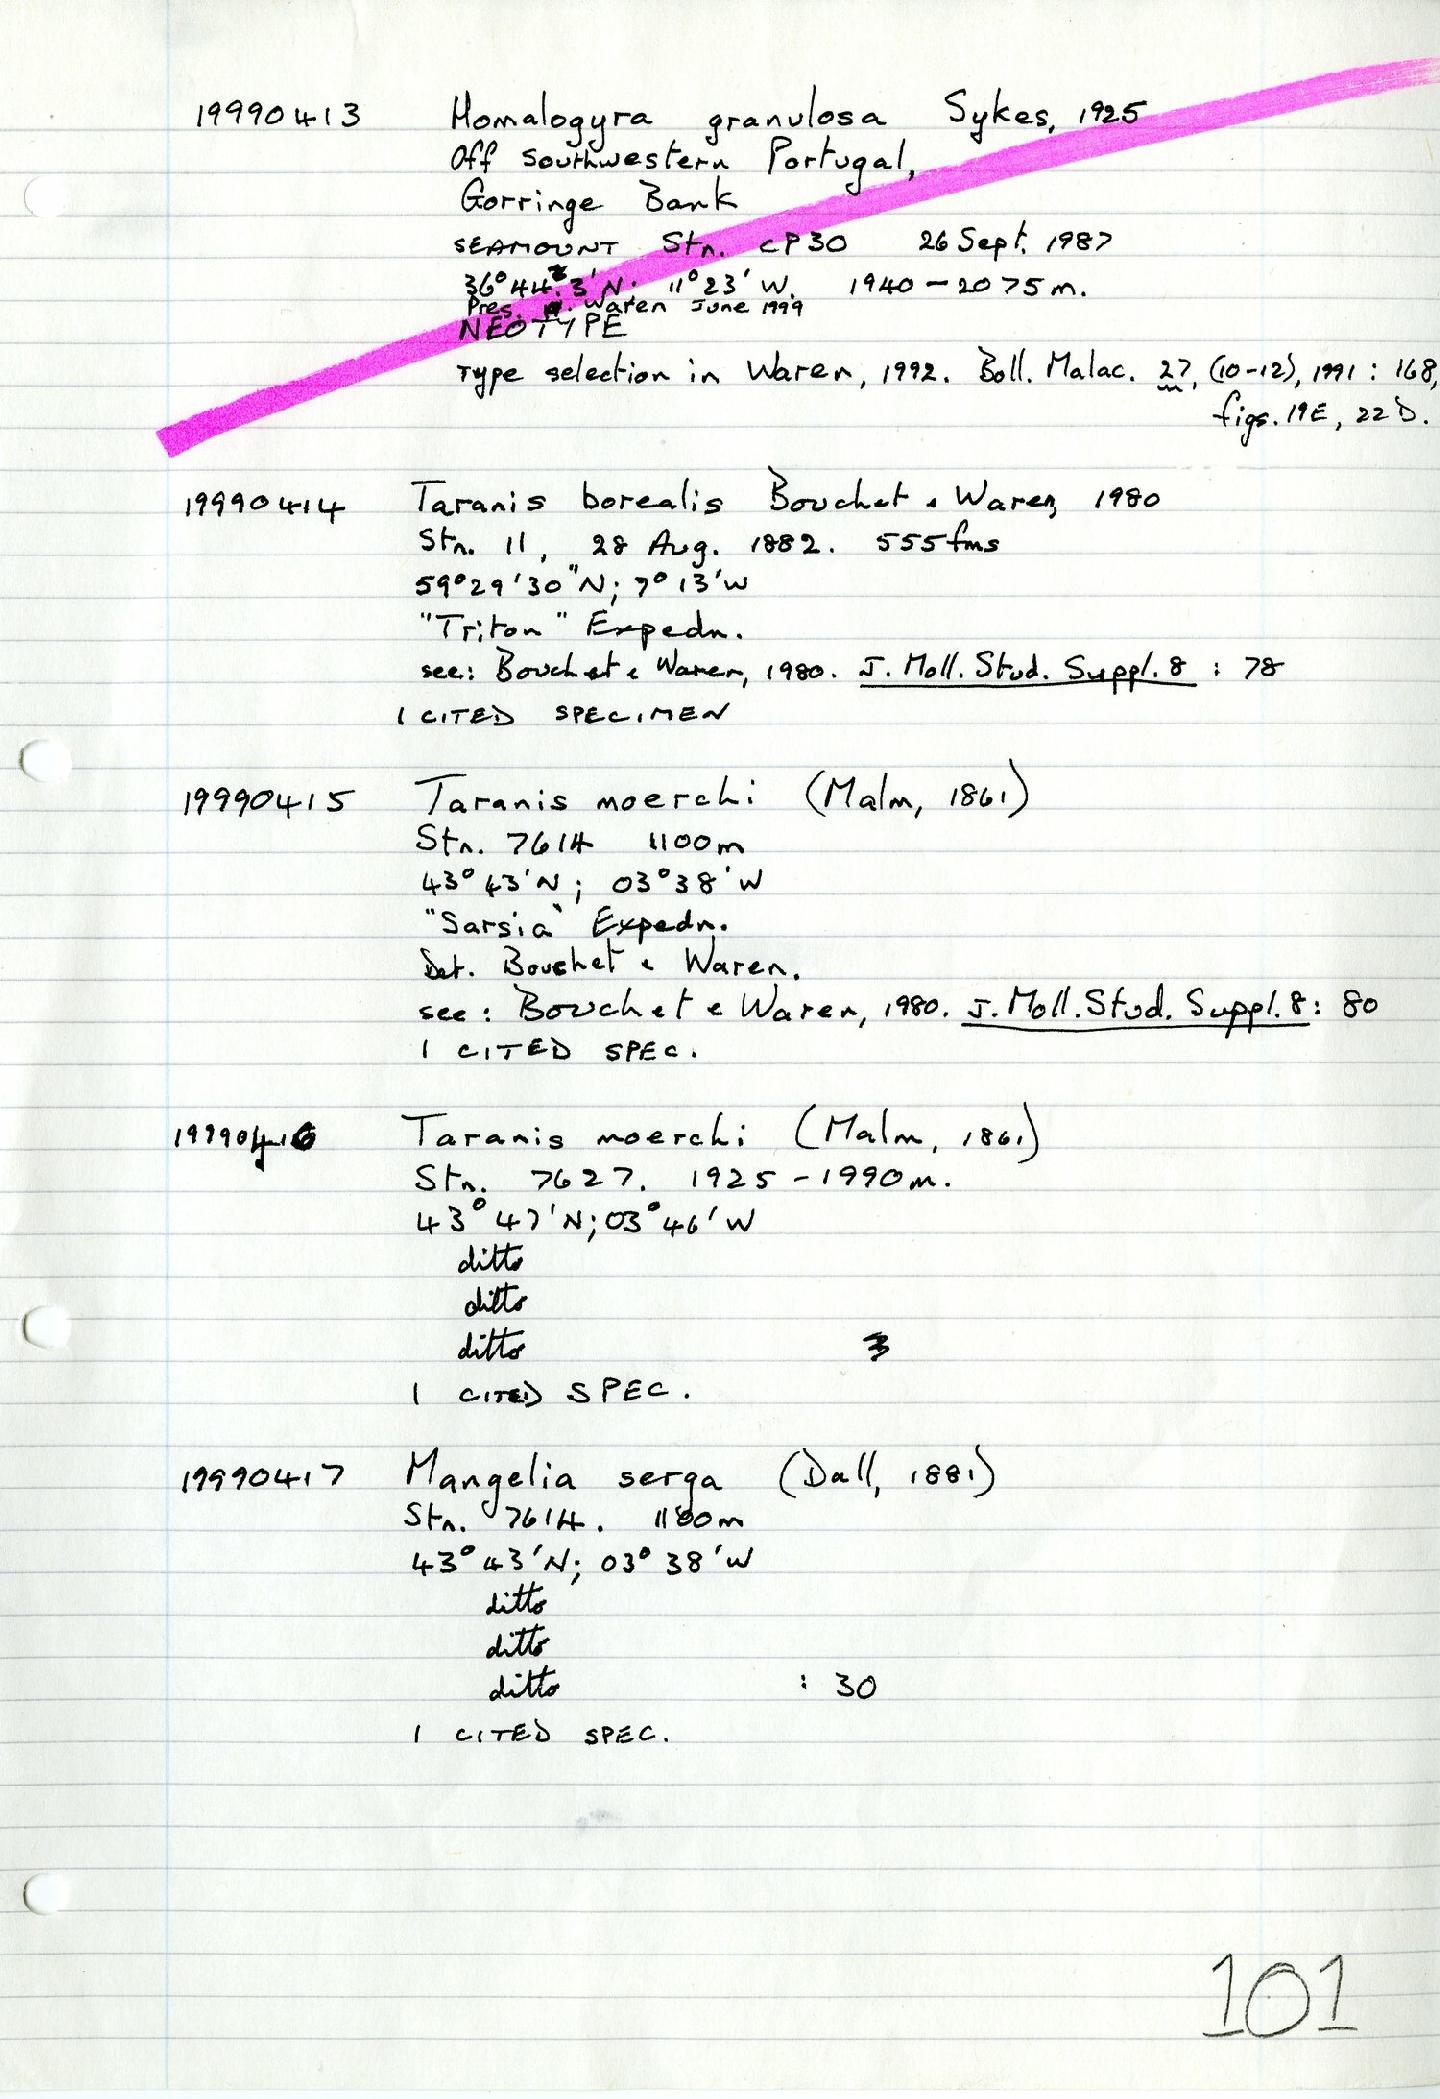 19990413 Homalogyra granulosa Sykes, 1925
Off southwestern Portugal,
Gorringe Bank
SEAMOUNT Stn. CP30 26 Sept. 1987
36°44.3'N. 11°23'W. 1940-2075m.
Pres. Waren June 1999
NEOTYPE
Type selection in Waren, 1992. Boll. Malac. 27, (10-12), 1991: 168,
figs. 19E, 22D.
19990414 Taranis borealis Bouchet & Waren, 1980
Stn. 11, 28 Aug. 1882. 555fms
59°29'30"N; 7°13'W
"Triton" Expedn.
see: Bouchet & Waren, 1980. J. Moll. Stud. Suppl. 8 : 78
1 CITED SPECIMEN
19990415 Taranis moerchi (Malm, 1861)
Stn. 7614 1100m
43°43'N; 03°38'W
"Sarsia" Expedn.
Det. Bouchet & Waren.
see: Bouchet & Waren, 1980. J. Moll. Stud. Suppl. 8: 80
1 CITED SPEC.
19990416 Taranis moerchi (Malm, 1861)
Stn. 7627. 1925-1990m.
43°47'N; 03°46'W
ditto
ditto
ditto
1 CITED SPEC.
19990417 Mangelia serga (Dall, 1881)
Stn. 7614. 1100m
43°43'N; 03°38'W
ditto
ditto
ditto : 30
1 CITED SPEC.
101